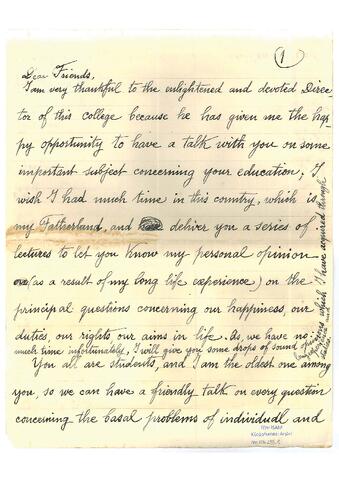 1
Dear Friends,
I am very thankful to the enlightened and devoted Direc-
tor of this college because he has given me the hap-
py opportunity to have a talk with you on some
important subject concerning your education; I
wish I had much time in this country, which is
my Fatherland, and deliver you a series of
lectures to let you know my personal opinion
(as a result of my long life experience) on the
principal questions concerning our happiness, our
duties, our rights, our aims in life. As, we have no
much time infortunately, I will give you some drops of sound opi-
nions which I have acquired through
experience and
studies.
You all are students, and I am the oldest one among
you, so we can have a friendly talk on every question
concerning the basal problems of individual and
Kütüphanesi Arşivi